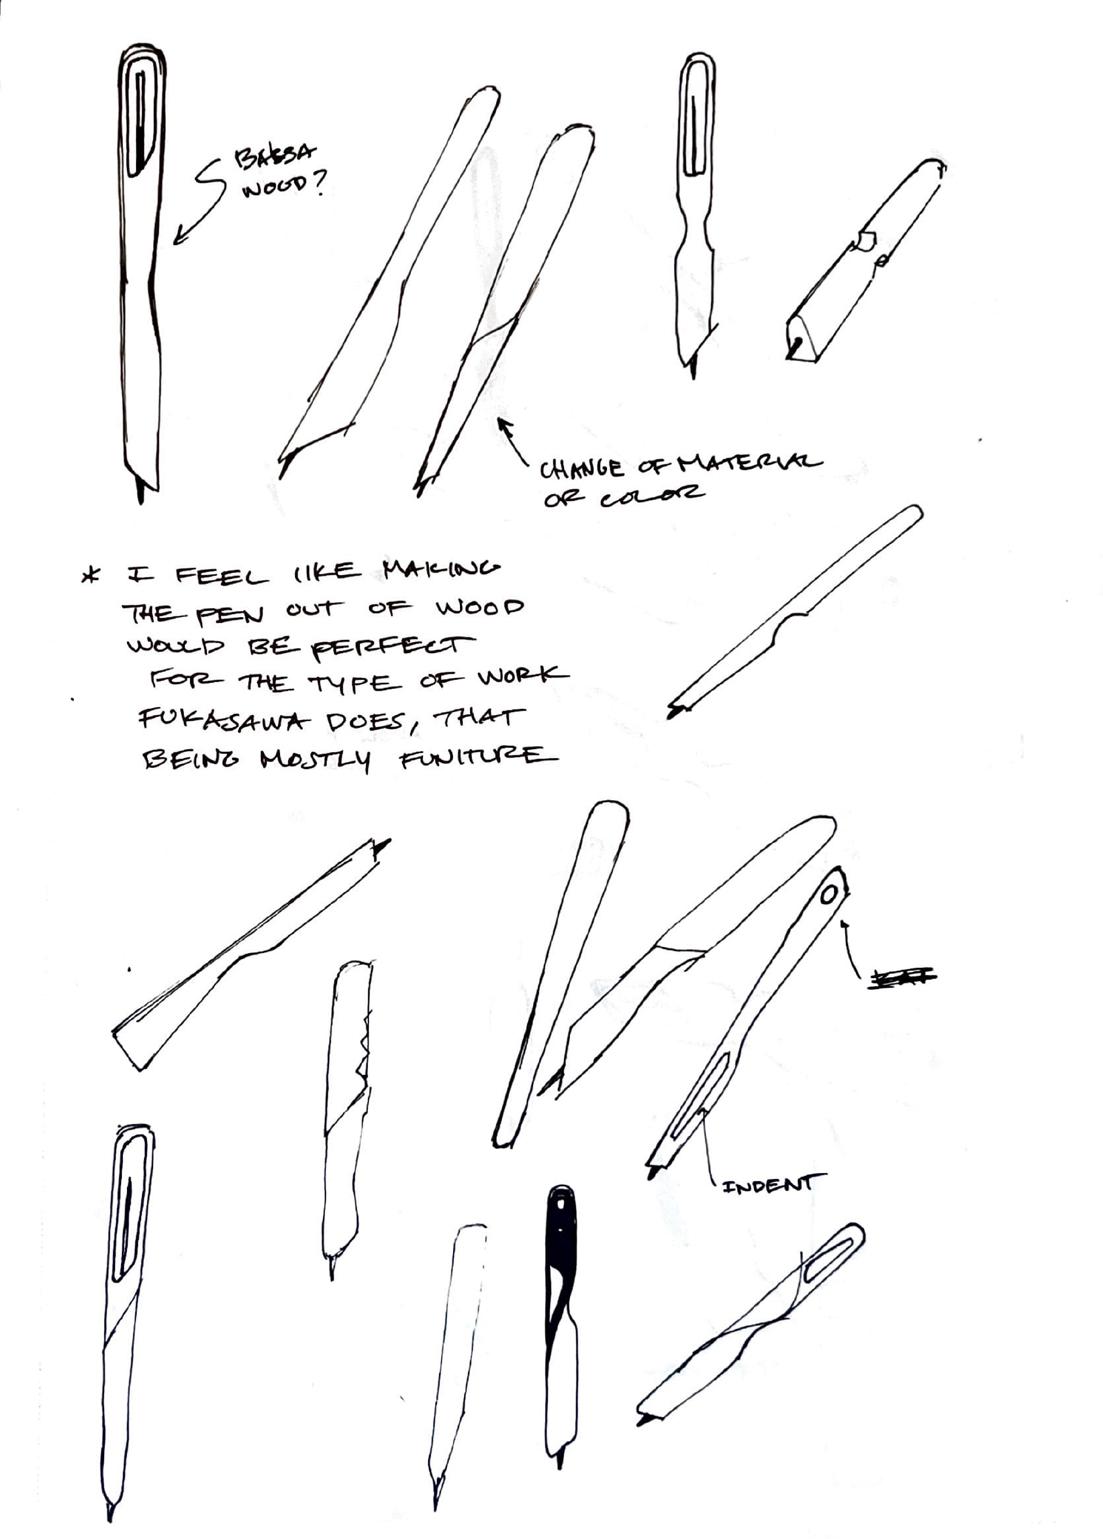 BALSA
WOOD?
CHANGE OF MATERIAL
OR COLOR
* I FEEL LIKE MAKING
THE PEN OUT OF WOOD
WOULD BE PERFECT
FOR THE TYPE OF WORK
FUKASAWA DOES, THAT
BEING MOSTLY FUNITURE
INDENT